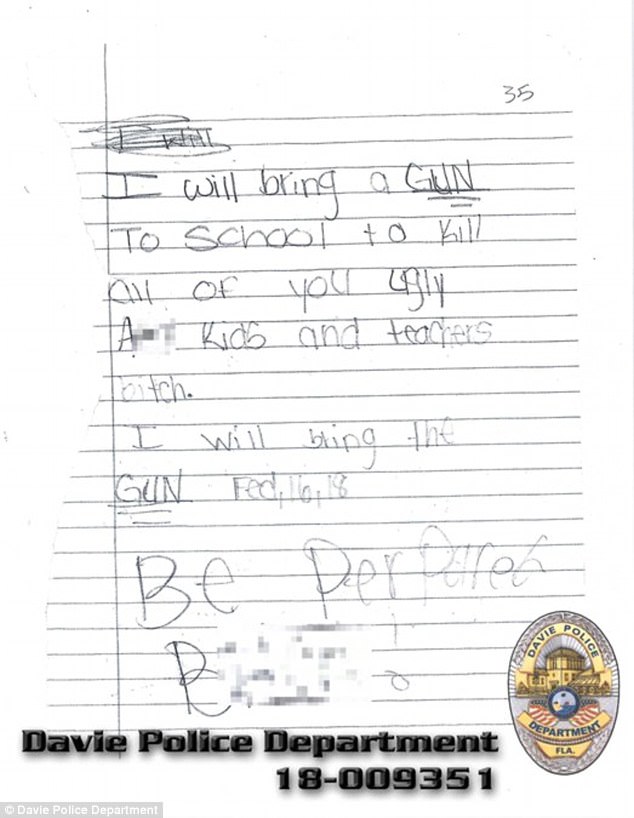 35
I will
I will bring a GUN
To School to kill
all of you ugly
A
kids and teachers
bitch.
I will bring the
GUN Fed,16,18
Be Perpared
DAVIE POLICE
DEPARTMENT
FLA.
Davie Police Department
18-009351
© Davie Police Department